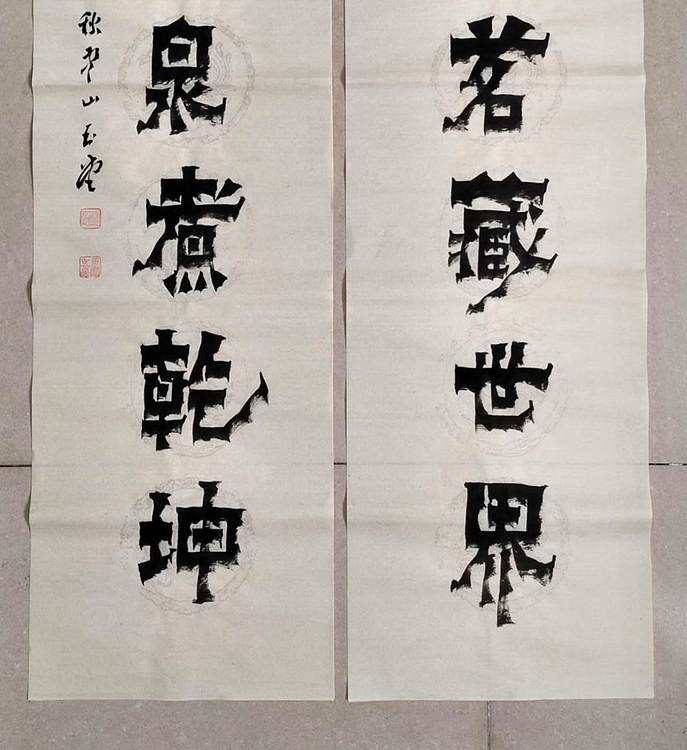 茗藏世界
泉煮乾坤
秋
山玉堂